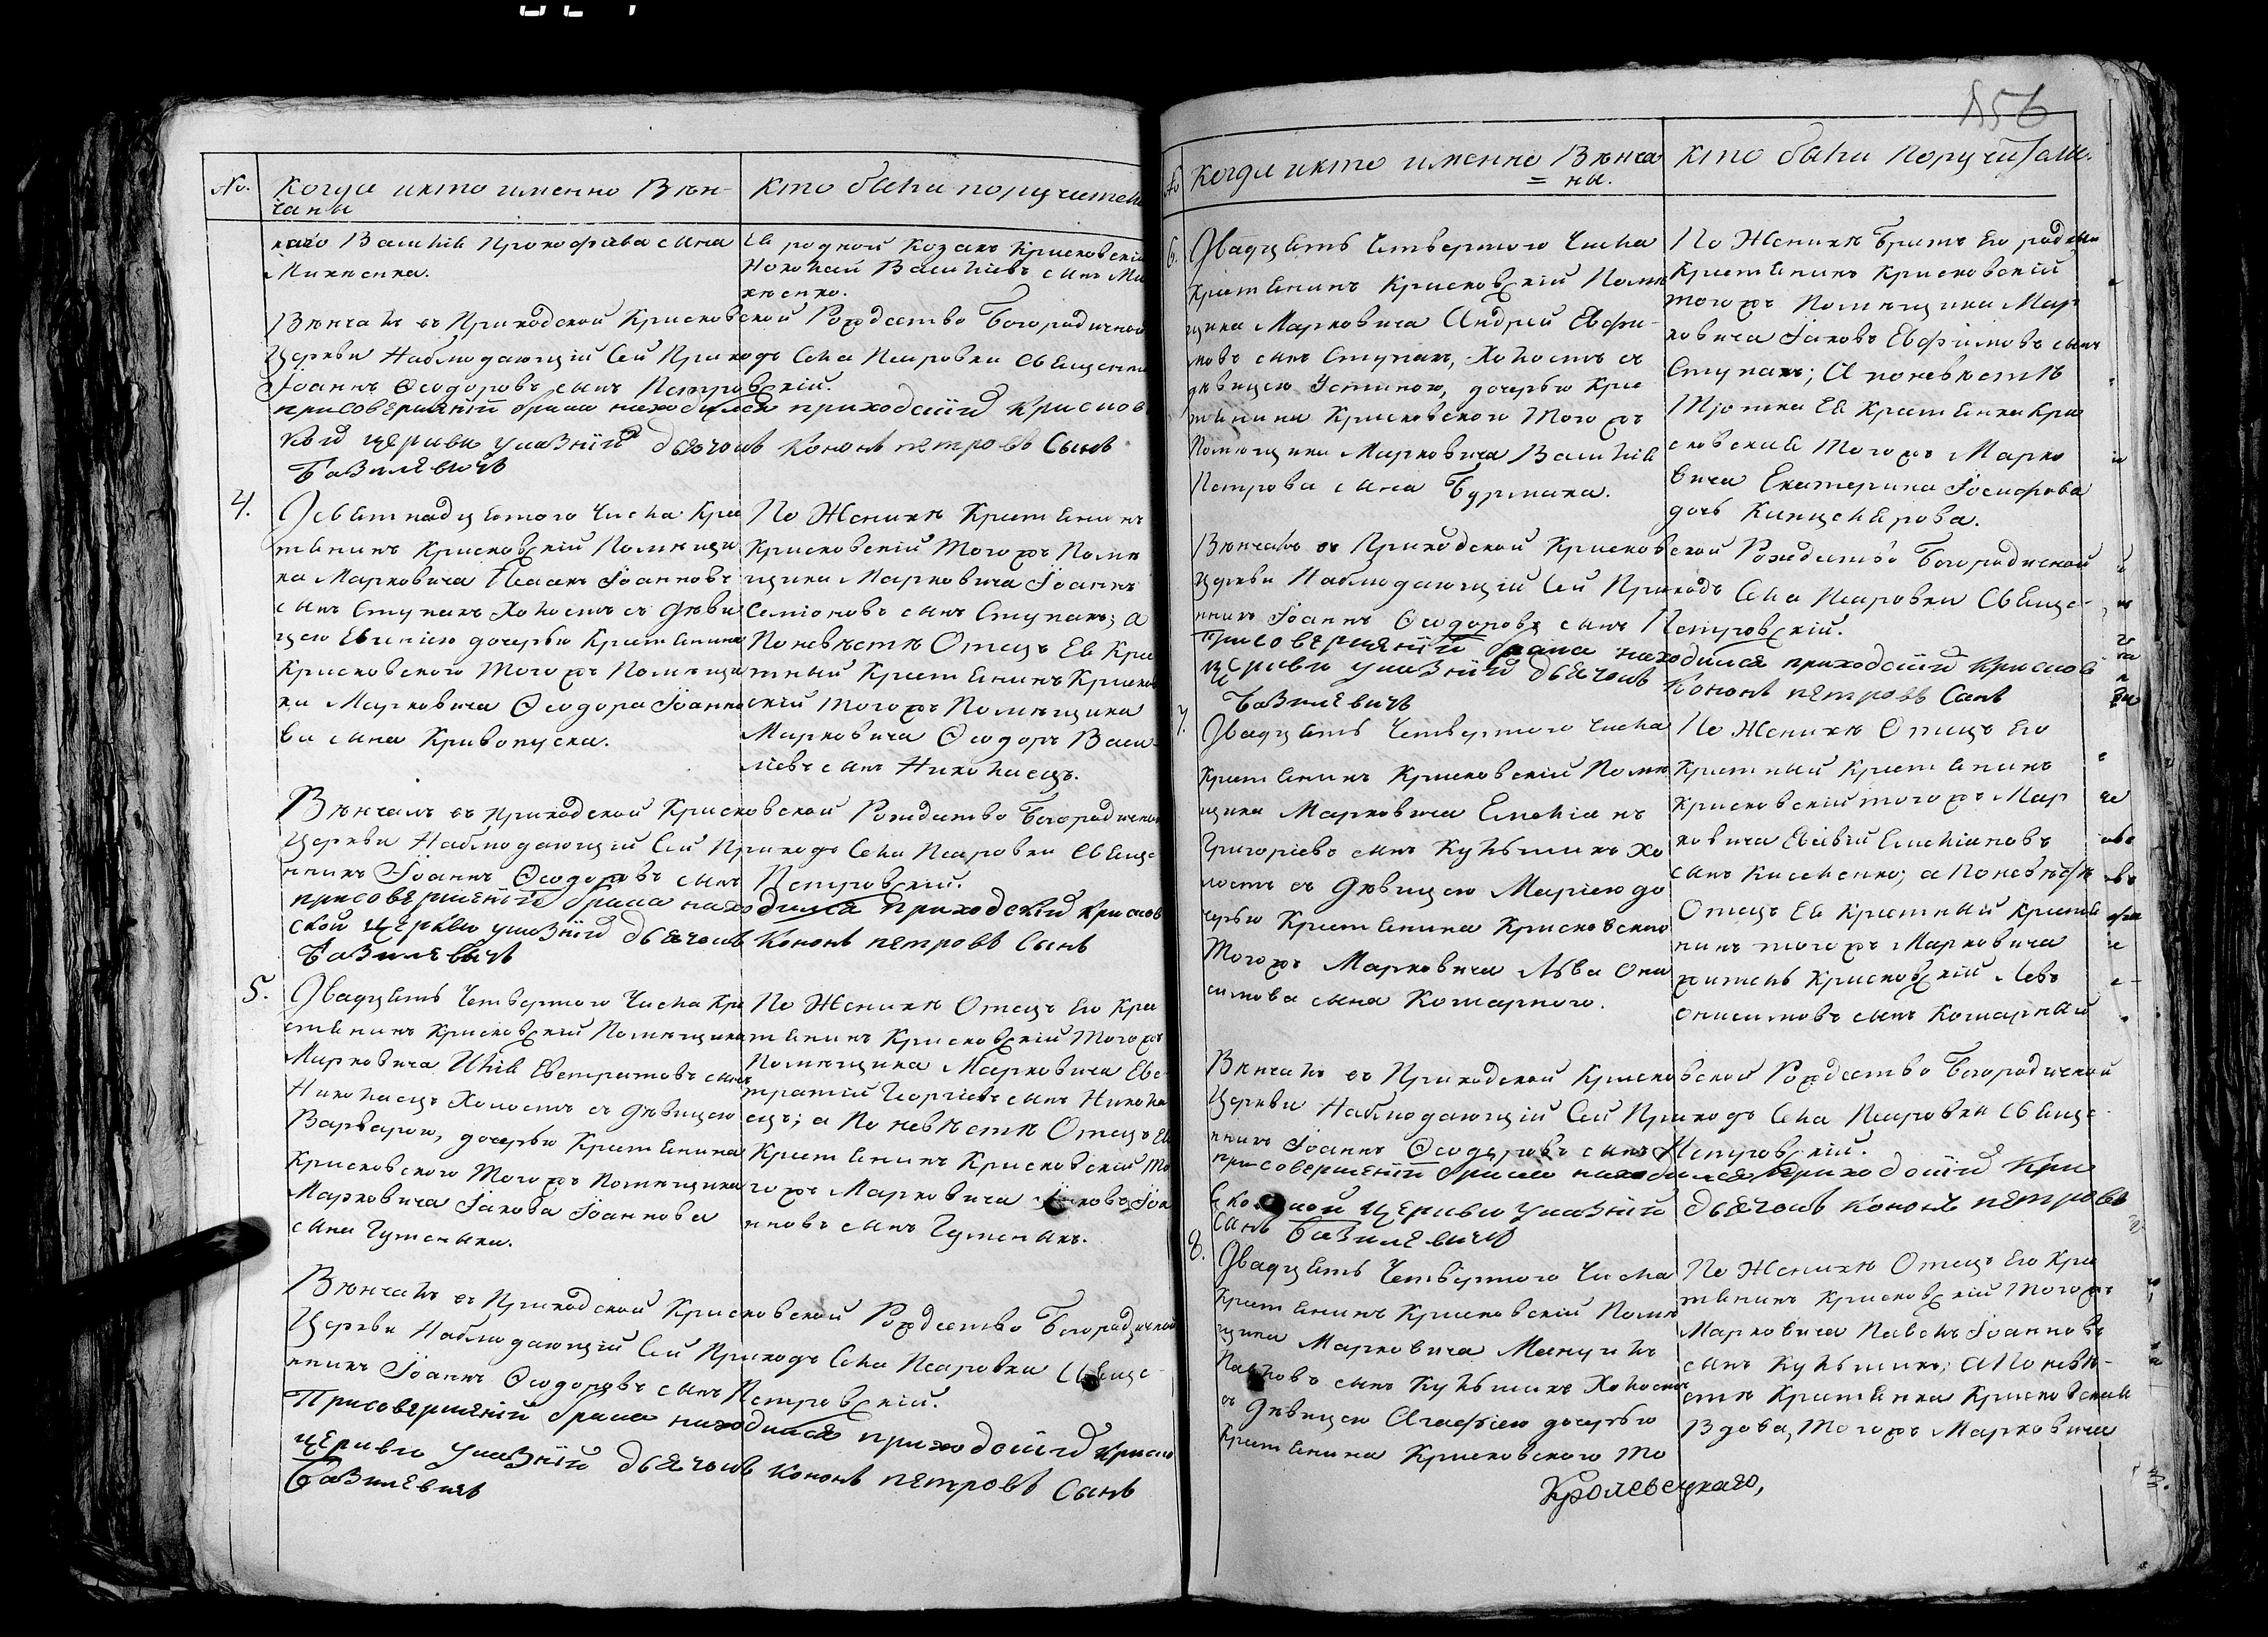 156
№. Когда и кто именно Вѣн-
чаны
Кто были поручители
каго Василія Прокофіева сына
Михненка.
Ея родной Козакъ Крисковскій
Николай Василіевъ сынъ Ми
хненко.
Вѣнчалъ въ Приходской Крисковской Рождество Богородичной
Церкви Наблюдающій Сей Приходъ Села Псаровки Священникъ
Іоаннъ Ѳеодоровъ сынъ Петровскій.
при совершеніи брака находился приходскій крисков
кой церкви указній дьячокъ Кононъ петровъ Сынъ
Базилевичъ
4. Девятнадцятого Числа Кре
стянинъ Крисковскій Помѣщи
ка Марковича Исаакъ Іоанновъ
сынъ Ступакъ Холостъ съ дѣви
цею Евгеніею дочерью Крестянина
Крисковского Тогожъ Помѣщи
ка Марковича Ѳеодора Іоанно
ва сына Кривопуска.
По Женихѣ Крестянинъ
Крисковскій Тогожъ Помѣ
щика Марковича Іоаннъ
Семіоновъ сынъ Ступакъ; а
По невѣстѣ Отецъ Ея Кре
стный Крестянинъ Крисков
скій тогожъ Помѣщика
Марковича Ѳеодоръ Васи-
ліевъ сынъ Николаецъ.
Вѣнчалъ въ приходской Крисковской Рождество Богородичной
Церкви Наблюдающій Сей Приходъ Села Псаровки Свяще
нникъ Іоаннъ Ѳеодоровъ сынъ Петровскій.
при совершеніи брака находился приходскій крисков
ской церкви указній дьячокъ Кононъ петровъ Сынъ
Базилевичъ
5. Двадцять Четвертого Числа Кре
стянинъ Крисковскій Помѣщика
Марковича Илія Евстратовъ сынъ
Николаецъ Холостъ съ дѣвицею
Варварою, дочерью Крестянина
Крисковского Тогожъ Помѣщика
Марковича Іакова Іоаннова
сына Гутника.
По Женихѣ Отецъ Его Кре
стянинъ Крисковскій Тогожъ
Помѣщика Марковича Евс
тратій Георгіевъ сынъ Никола
ецъ; а По невѣстѣ Отецъ Ея
Крестянинъ Крисковскій То
гожъ Марковича Іаковъ Іоа
нновъ сынъ Гутникъ.
Вѣнчалъ въ Приходской Крисковской Рождество Богородичной
Церкви Наблюдающій Сей Приходъ Села Псаровки Свяще-
нникъ Іоаннъ Ѳеодоровъ сынъ Петровскій.
При совершеніи брака находился приходскій криско
церкви указній дьячокъ кононъ петровъ Сынъ
Базилевичъ
№ Когда и кто именно Вѣнча
= ны.
Кто были Поручители.
6. Двадцять Четвертого Числа
Крестянинъ Крисковскій Помѣ
щика Марковича Андрей Евфи-
мовъ сынъ Ступакъ, Холостъ съ
дѣвицею Устиною, дочерью Кре
стянина Крисковского Тогожъ
Помѣщика Марковича Василія
Петрова сына Бурмака.
По Женихѣ Братъ Его родный
Крестянинъ Крисковскій
тогожъ Помѣщика Мар
ковича Іаковъ Евфимовъ сынъ
Ступакъ; А по невѣстѣ
Тютка Ея Крестянка Кри
сковская Тогожъ Марко
вича Екатерина Іосифова
дочь
Вѣнчалъ въ Приходской Крисковской Рождество Богородичной
Церкви Наблюдающій Сей Приходъ Села Псаровки Свяще-
нникъ Іоаннъ Ѳеодоровъ сынъ Петровскій.
При совершеніи брака находился приходскій крисков
церкви указній дьячокъ Кононъ петровъ Синъ
Базилевичъ
7. Двадцять Четвертого Числа
Крестянинъ Крисковскій Помѣ
щика Марковича Емеліанъ
Григоріевъ сынъ Кульшикъ Хо
лостъ съ дѣвицею Маріею до
черью Крестянина Крисковского
Тогожъ Марковича Льва Они
симова сына Кошарного.
По Женихѣ Отецъ Его
Крестный Крестянинъ
Крисковскій тогожъ Мар
ковича Евсѣвій Емеліановъ
сынъ Киселенко; а По невѣстѣ
Отецъ Ея Крестный Крестя
нинъ тогожъ Марковича
житель Крисковскій Левъ
Онисимовъ сынъ Кошарный
Вѣнчалъ въ Приходской Крисковской Рождество Богородичной
Церкви Наблюдающій Сей Приходъ Села Псаровки Свяще-
нникъ Іоаннъ Ѳеодоровъ сынъ Петровскій.
при совершеніи брака находился приходскій Кри
ской церкви указній дьячокъ кононъ петровъ
Синъ Базилевичъ
8. Двадцять Четвертого Числа
Крестянинъ Крисковскій Помѣ
щика Марковича Мануилъ
Павловъ сынъ Кульшикъ Холостъ
съ дѣвицею Агафіею дочерью
Крестянина Крисковского То
По Женихѣ Отецъ Его Кре
стянинъ Крисковскій Тогожъ
Марковича Павелъ Іоанновъ
сынъ Кульшикъ; А По невѣ-
стѣ Крестянка Крисковская
Вдова, Тогожъ Марковича
Кролевецкаго,